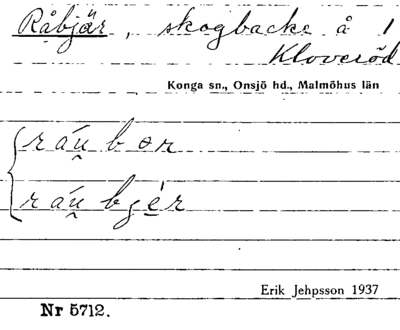 Råbjär, skogbacke å 1
Kloveröd
Konga sn., Onsjö hd., Malmöhus län
ráu̯ bər
ráu̯ bjér
Erik Jehpsson 1937
Nr 5712.